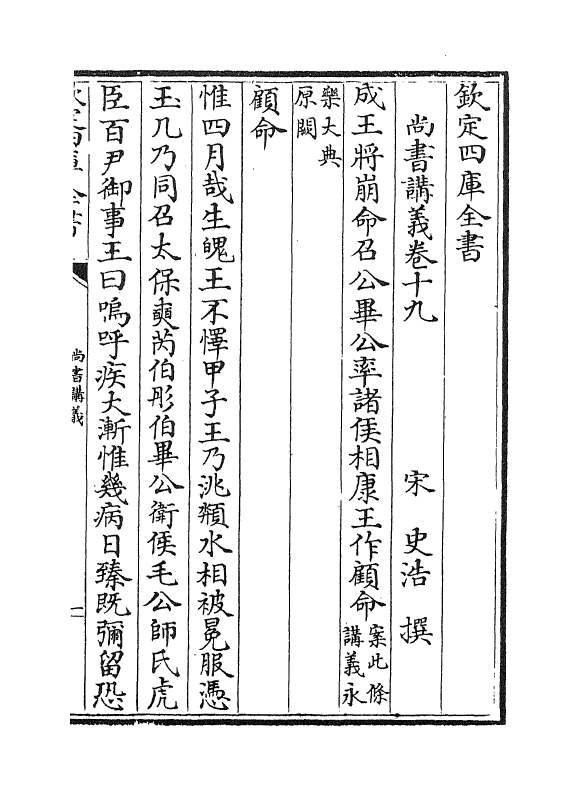 欽定四庫全書
尚書講義卷十九
宋 史浩 撰
成王將崩命召公畢公率諸侯相康王作顧命案此條講義永
樂大典原闕
顧命
惟四月哉生魄王不懌甲子王乃洮頮水相被冕服憑
玉几乃同召太保奭芮伯彤伯畢公衛侯毛公師氏虎
臣百尹御事王曰嗚呼疾大漸惟幾病日臻既彌留恐
欽定四庫全書
尚書講義
一